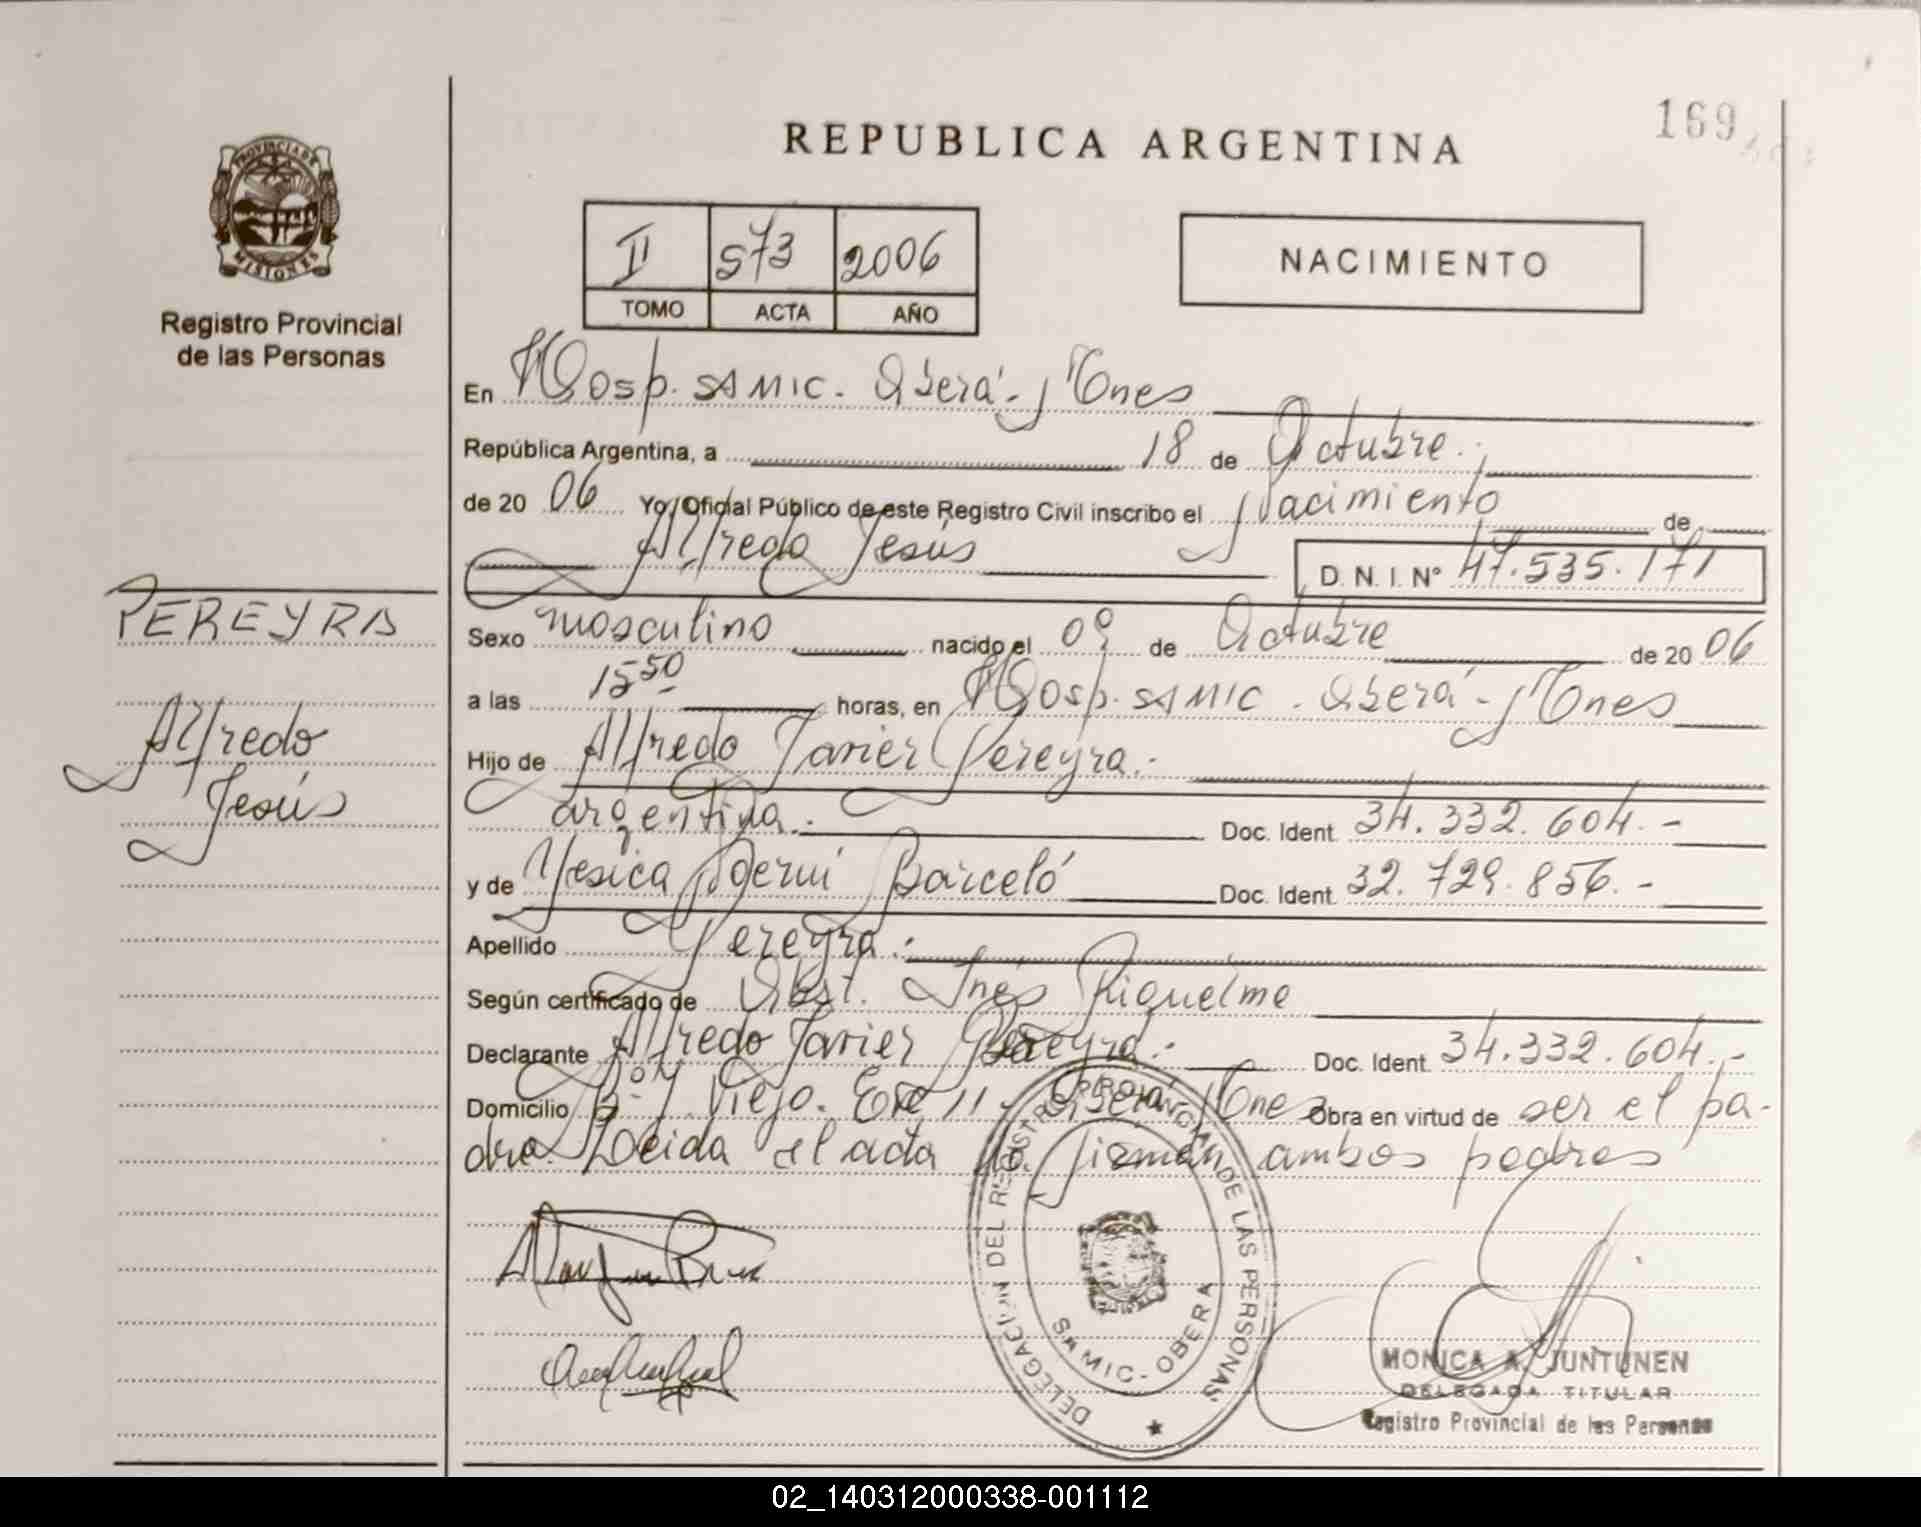 169
REPUBLICA ARGENTINA
PROVINCIA DE
MISIONES
Registro Provincial
de las Personas
II 573 2006
TOMO ACTA AÑO
NACIMIENTO
En Hosp. SAMIC. Oberá - Mnes
República Argentina, a 18 de Octubre.
de 2006 Yo, Oficial Público de este Registro Civil inscribo el Nacimiento de
Alfredo Jesús D. N. I. N° 47.535.171
PEREYRA
Alfredo
Jesús
Sexo masculino nacido el 09 de Octubre de 2006
a las 15 50 horas, en Hosp. SAMIC. Oberá - Mnes
Hijo de Alfredo Javier Pereyra.-
argentina.- Doc. Ident. 34.332.604.-
y de Yesica Barceló Doc. Ident. 32.729.856.-
Apellido Pereyra.-
Según certificado de Obst. Inés Riquelme
Declarante Alfredo Javier Pereyra.- Doc. Ident. 34.332.604.-
Domicilio B° Viejo. Oberá Mnes Obra en virtud de ser el pa-
dre. Leida el acta la firman ambos padres
DELEGACION DEL REGISTRO PROVINCIAL DE LAS PERSONAS
SAMIC - OBERA
MONICA A. JUNTUNEN
DELEGADA TITULAR
Registro Provincial de las Personas
02_140312000338-001112